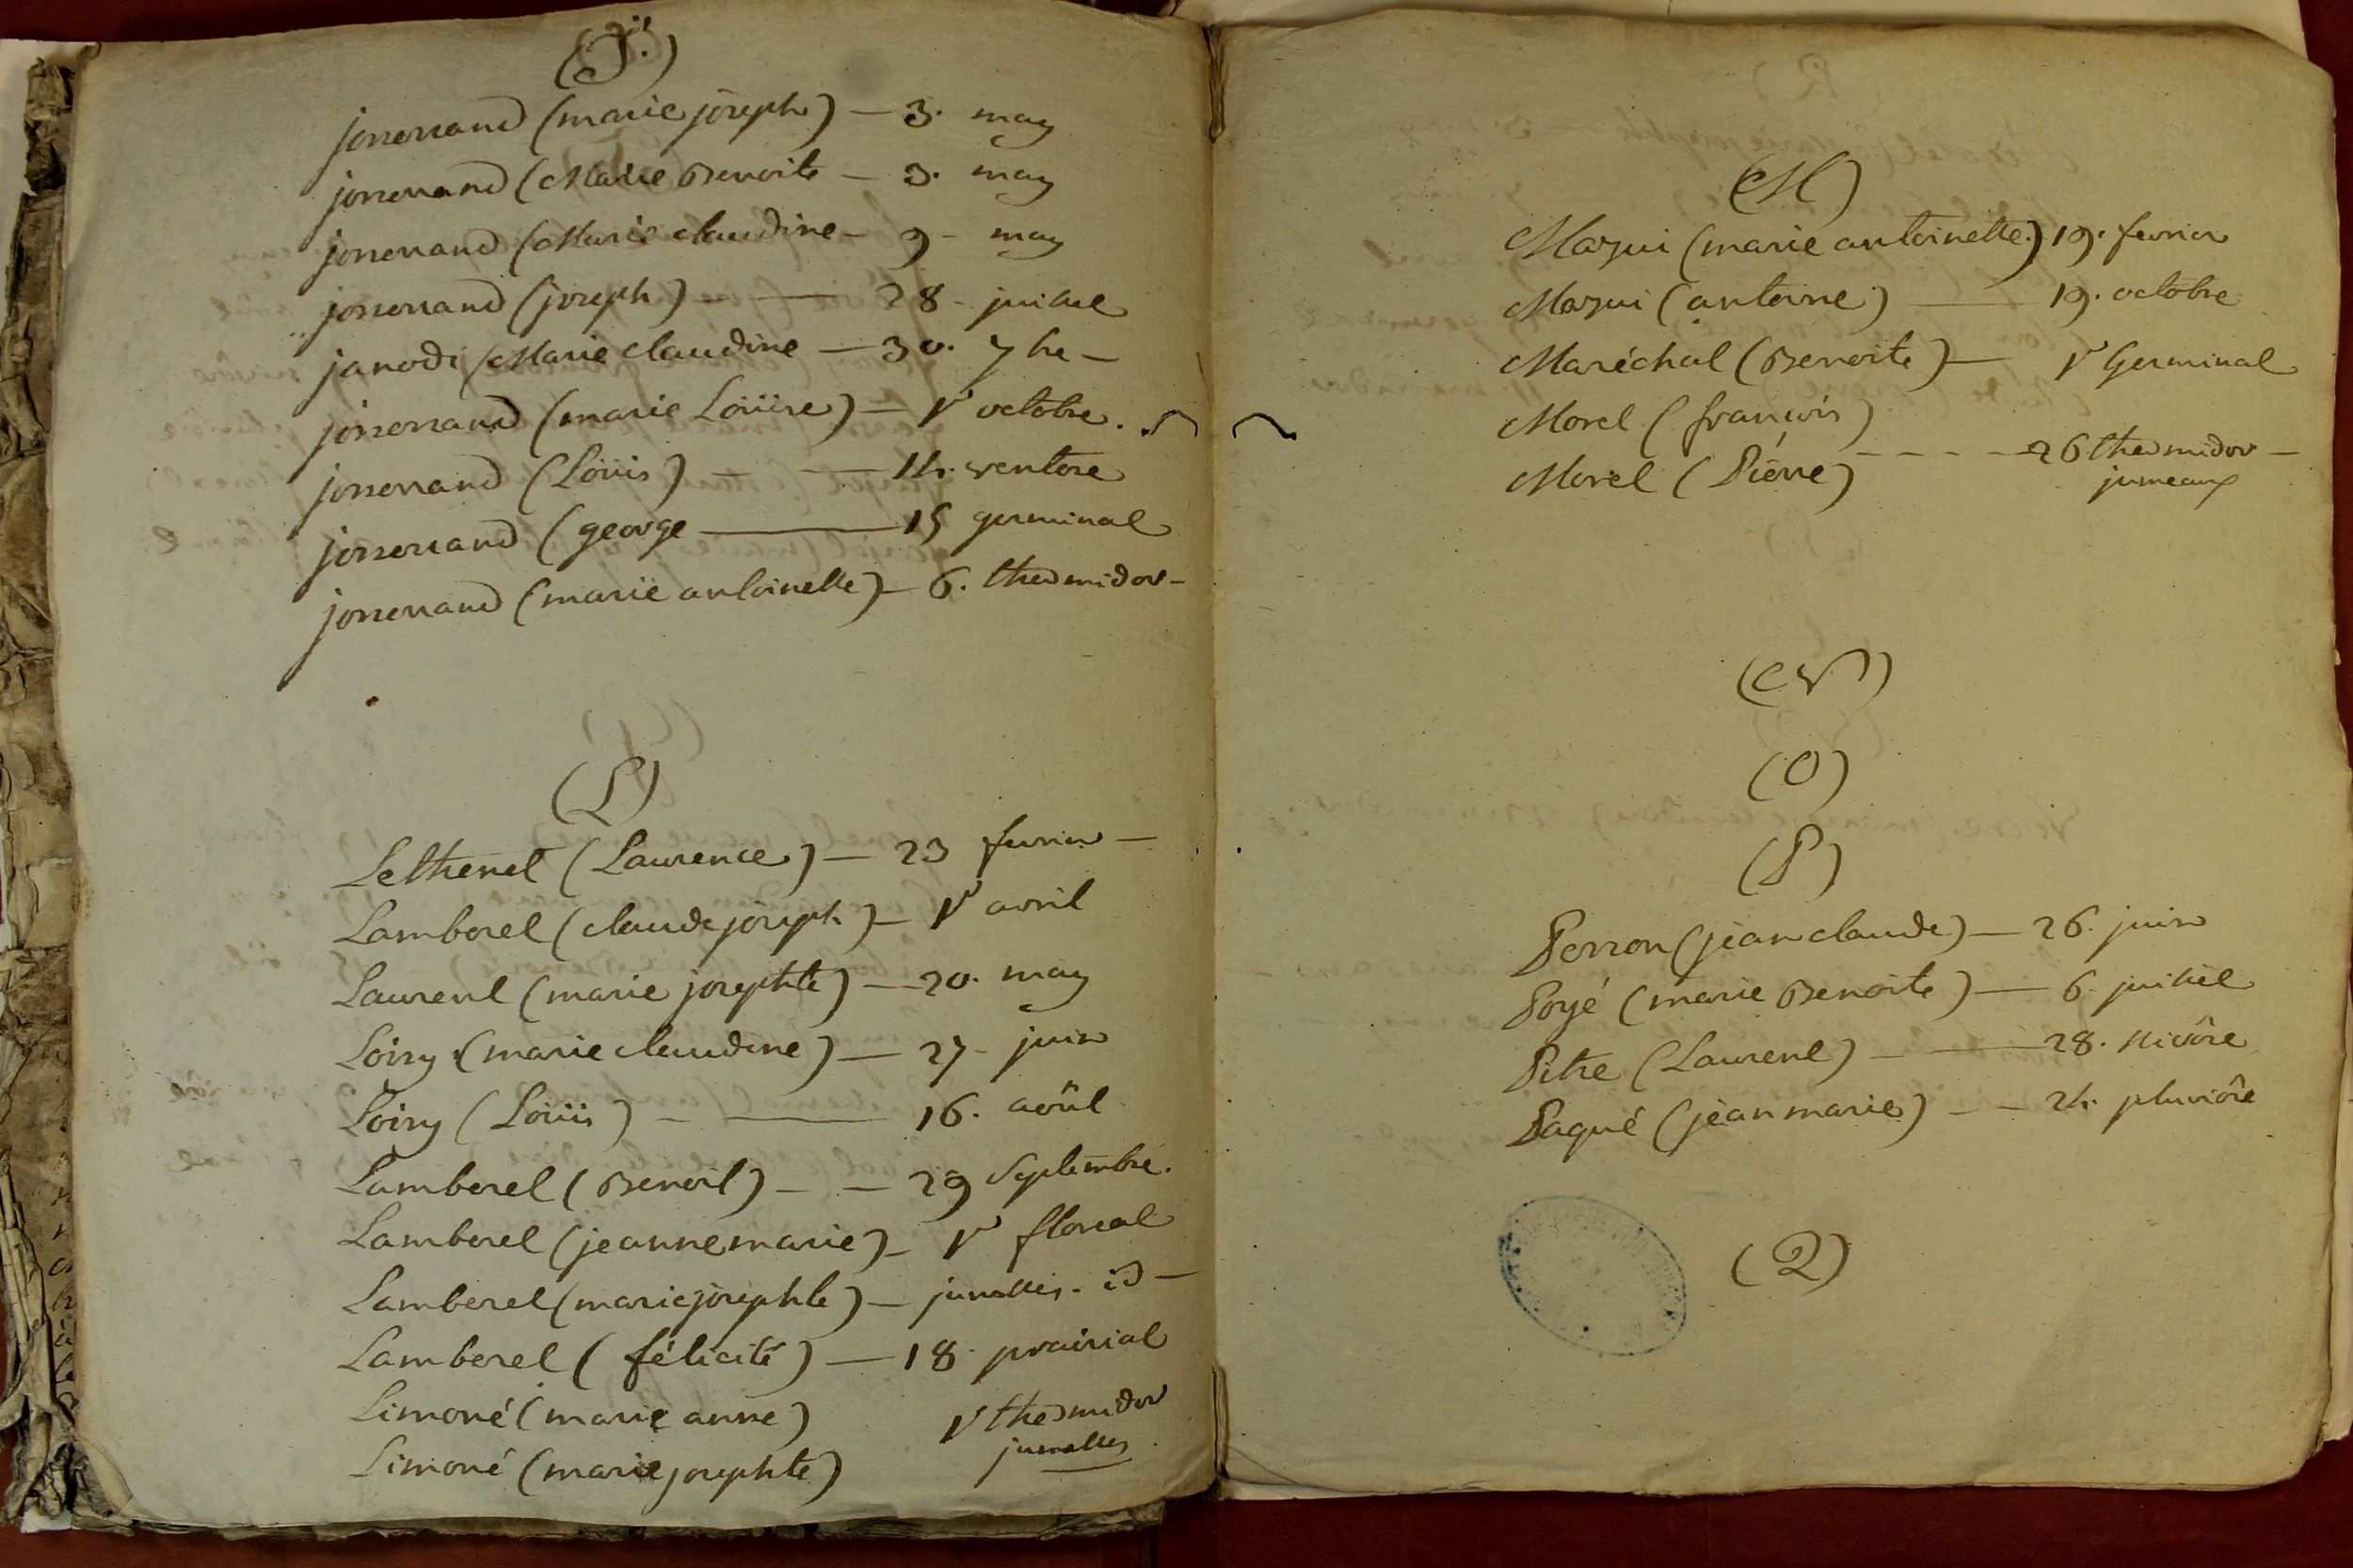 (J.)
josserand (marie joseph) — 3. may
josserand (Marie Benoite — 3. may
josserand (Marie claudine — 9 - may
josserand (joseph) — 28 - juillet
janodi (Marie claudine — 30. 7bre —
josserand (marie Loüise) — 1er octobre.
josserand (Loüis) — 14. ventose
josserand (george — 15 germinal
josserand (marie antoinette) — 6. thermidor —
(L)
Lethenet (Laurence) — 23 fevrier —
Lamberel (claude joseph) — 1er avril
Laurent (marie josephte) — 20. may
Loisy (marie claudine) — 27 - juin
Loisy (Loüis) — 16. aoüt
Lamberel (Benoit) — — 29 Septembre.
Lamberel (jeanne marie) — 1er floreal
Lamberel (marie josephte) — jumelles - id —
Lamberel (félicité) — 18. prairial
Limoné (marie anne) 1er thermidor
jumelles
Limoné (marie josephte)
(M)
Mazui (marie antoinette) 19. fevrier
Mazui (antoine) — 19. octobre
Maréchal (Benoite) — 1er Germinal
Morel (françois)
Morel (Piérre) - - - - 26 thermidor —
jumeaux
(N)
(O)
(P)
Perron (jean claude) — 26. juin
Poyé (marie Benoite) — 6. juillet
Pitre (Laurent) — 28. Nivôse
Paqué (jean marie) — — 24. pluviôse
(Q)